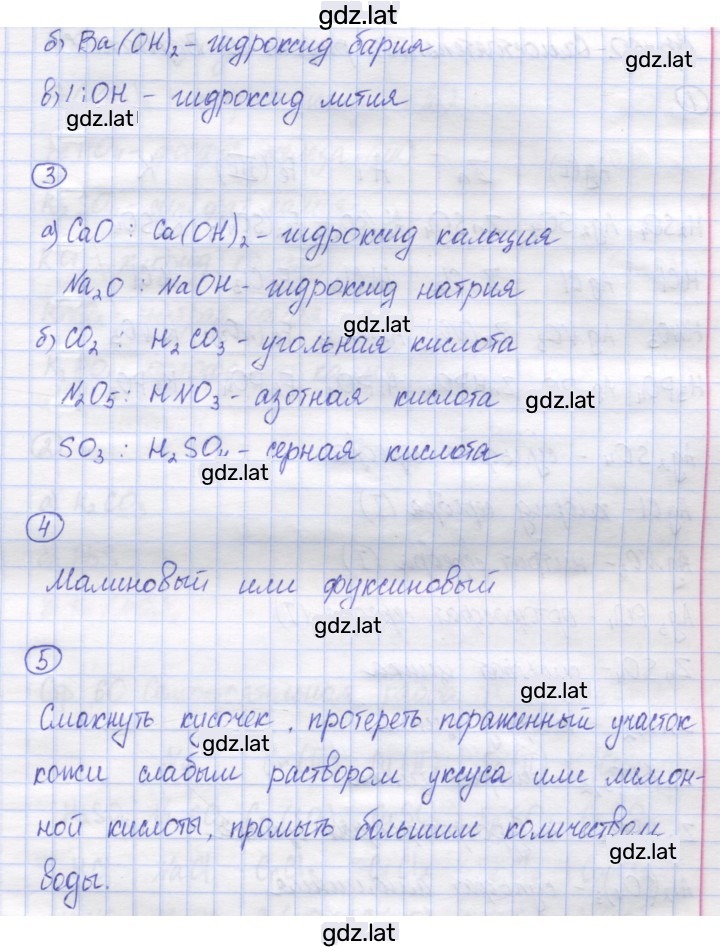 gdz.lat
б) Ba(OH)₂ - гидроксид бария
gdz.lat
в) LiOH - гидроксид лития
gdz.lat
3
а) CaO : Ca(OH)₂ - гидроксид кальция
Na₂O : NaOH - гидроксид натрия
gdz.lat
б) CO₂ : H₂CO₃ - угольная кислота
N₂O₅ : HNO₃ - азотная кислота
gdz.lat
SO₃ : H₂SO₄ - серная кислота
gdz.lat
4
Малиновый или фуксиновый
gdz.lat
5
gdz.lat
Смахнуть кусочек, протереть пораженный участок
gdz.lat
кожи слабым раствором уксуса или лимон-
ной кислоты, промыть большим количеством
gdz.lat
воды.
gdz.lat